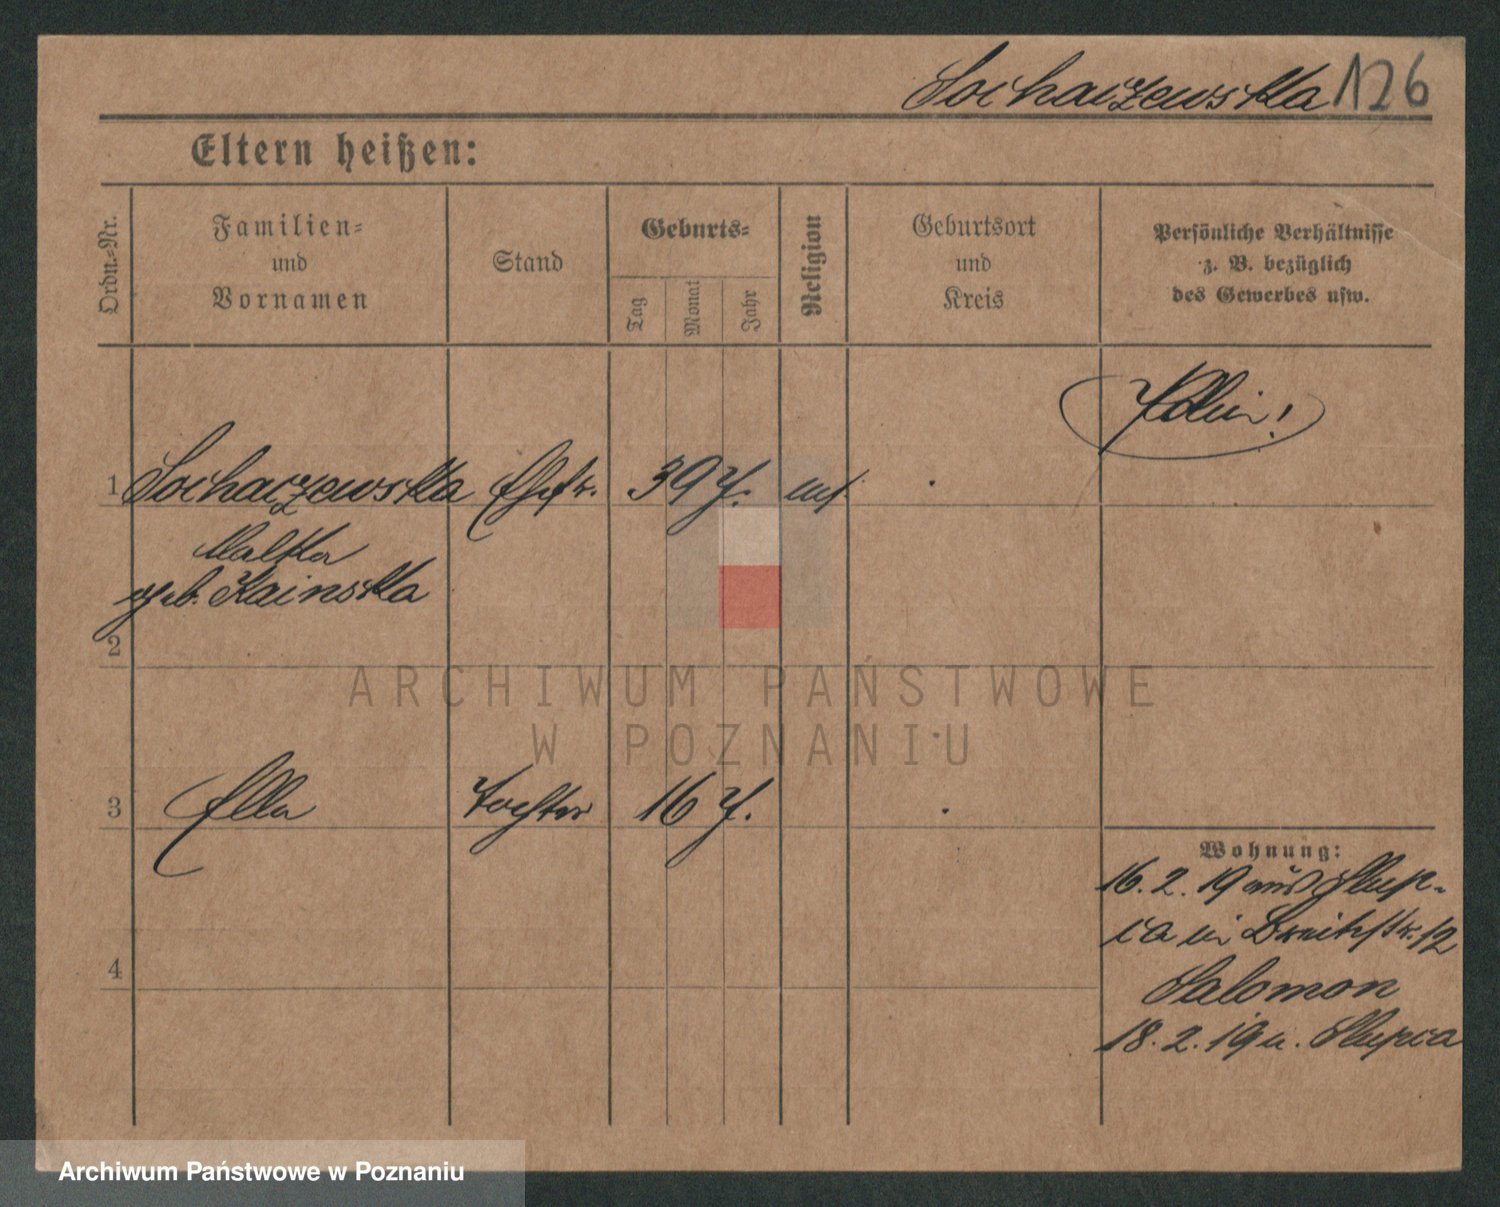 Sochaczewska 126
Eltern heißen:
Ordn.-Nr.
Familien-
und
Vornamen
Stand
Geburts-
Tag
Monat
Jahr
Religion
Geburtsort
und
Kreis
Persönliche Verhältnisse
z. B. bezüglich
des Gewerbes usw.
1 Sochaczewska Ehefr. 39 J.
Malka
geb. Kainska
2
ARCHIWUM PAŃSTWOWE
W POZNANIU
3 Ella Tochter 16 J.
Wohnung:
16.2.19 aus Slup-
ca in Breitestr. 12
Salomon
18.2.19 n. Slupca
4
Archiwum Państwowe w Poznaniu